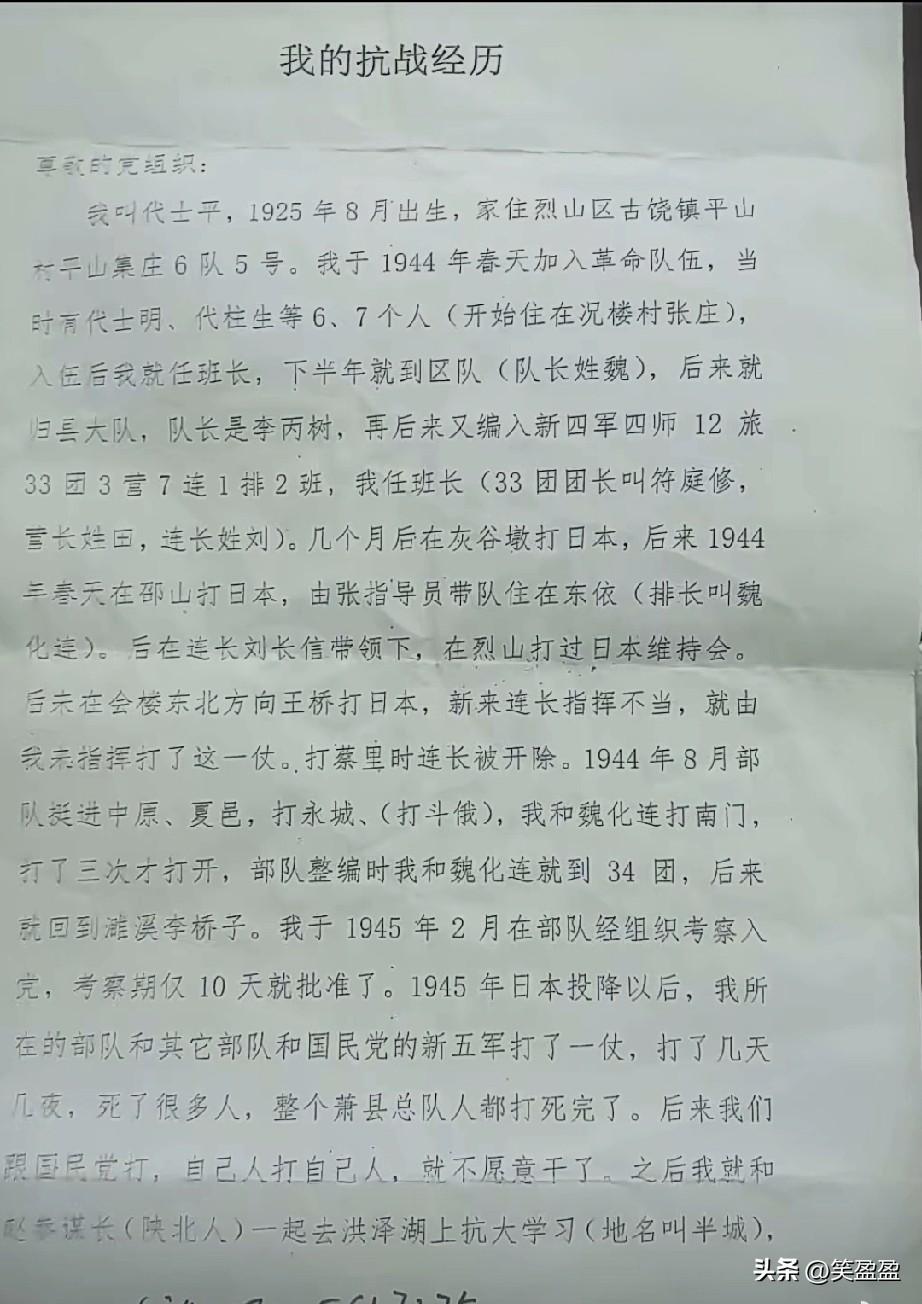 我的抗战经历
尊敬的党组织：
我叫代士平，1925 年 8 月出生，家住烈山区古饶镇平山
村平山集庄 6 队 5 号。我于 1944 年春天加入革命队伍，当
时有代士明、代柱生等 6、7 个人（开始住在况楼村张庄），
入伍后我就任班长，下半年就到区队（队长姓魏），后来就
归县大队，队长是李丙树，再后来又编入新四军四师 12 旅
33 团 3 营 7 连 1 排 2 班，我任班长（33 团团长叫符庭修，
营长姓田，连长姓刘）。几个月后在灰谷墩打日本，后来 1944
年春天在邵山打日本，由张指导员带队住在东依（排长叫魏
化连）。后在连长刘长信带领下，在烈山打过日本维持会。
后来在会楼东北方向王桥打日本，新来连长指挥不当，就由
我来指挥打了这一仗。打蔡里时连长被开除。1944 年 8 月部
队挺进中原、夏邑，打永城、（打斗俄），我和魏化连打南门，
打了三次才打开，部队整编时我和魏化连就到 34 团，后来
就回到濉溪李桥子。我于 1945 年 2 月在部队经组织考察入
党，考察期仅 10 天就批准了。1945 年日本投降以后，我所
在的部队和其它部队和国民党的新五军打了一仗，打了几天
几夜，死了很多人，整个萧县总队人都打死完了。后来我们
跟国民党打，自己人打自己人，就不愿意干了。之后我就和
赵参谋长（陕北人）一起去洪泽湖上抗大学习（地名叫半城），
头条 @笑盈盈